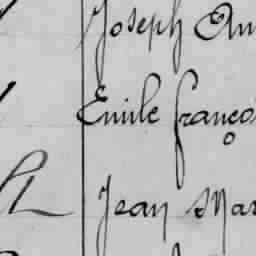 Joseph
Emile franço
Jean Mar